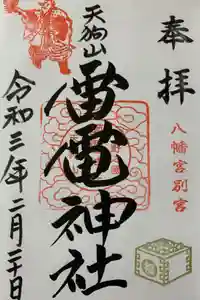 奉拝
八幡宮別宮
天狗山
雷電神社
令和三年二月二十日